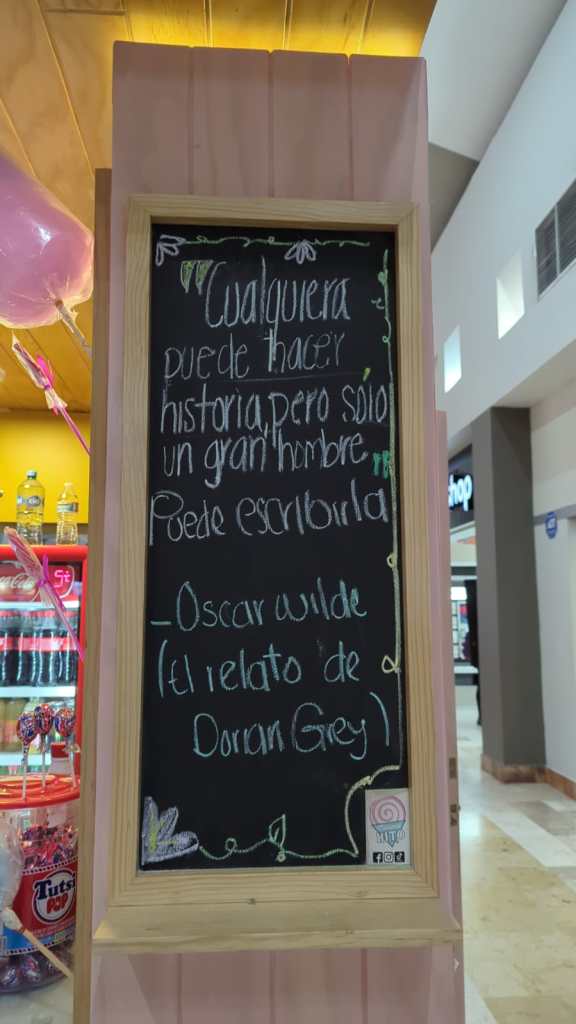 "Cualquiera
puede hacer
historia, pero sólo
un gran hombre"
Puede escribirla
- Oscar wilde
(El relato de
Dorian Grey)
KITO
shop
Coca-Cola
Tutsi
POP